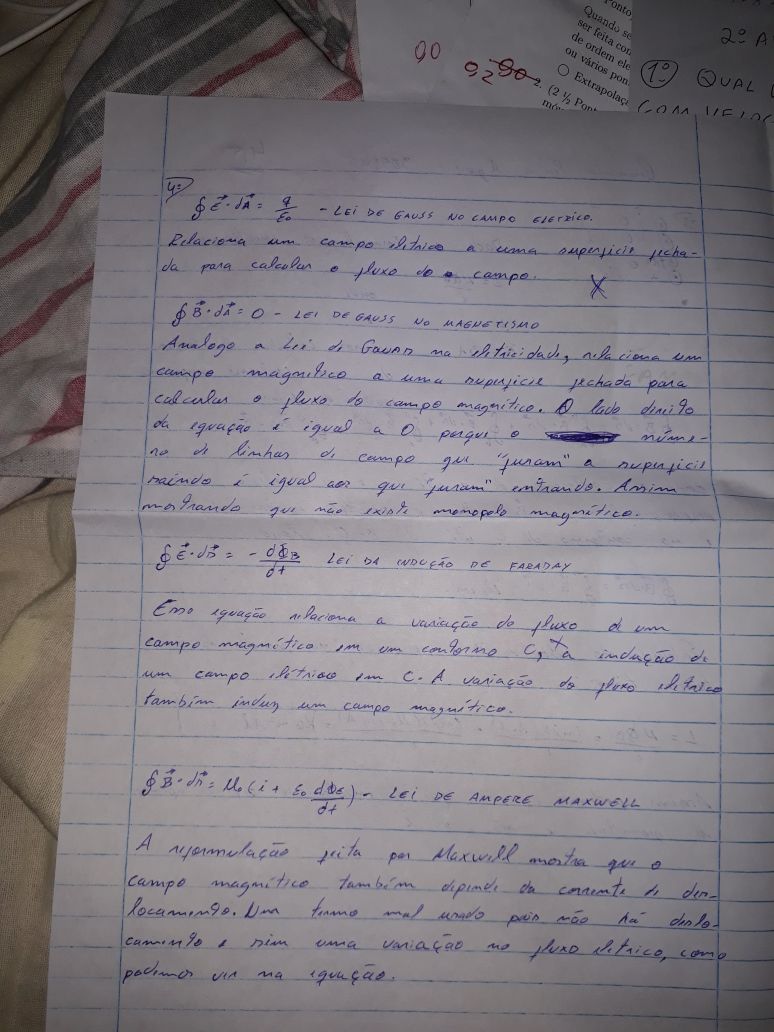 Ponto
Quando se
ser feita con
de ordem ele
ou vários pon
○ Extrapolaç
2. (2 ½ Pont
90
92
2º A
1º QUAL
COM VELOC
4º
∮ E⃗·dA⃗ = q/ε₀ - LEI DE GAUSS NO CAMPO ELETRICO.
Relaciona um campo eletrico a uma superficie fecha-
da para calcular o fluxo do campo. X
∮ B⃗·dA⃗ = 0 - LEI DE GAUSS NO MAGNETISMO
Analogo a Lei de Gauss na eletricidade, relaciona um
campo magnetico a uma superficie fechada para
calcular o fluxo do campo magnético. O lado direito
da equação é igual a 0 porque o núme-
ro de linhas de campo que "furam" a superficie
saindo é igual aos que "furam" entrando. Assim
mostrando que não existe monopolo magnético.
∮ E⃗·ds⃗ = - dΦB/dt LEI DA INDUÇÃO DE FARADAY
Essa equação relaciona a variação do fluxo de um
campo magnético em um contorno C, a indução de
um campo elétrico em C. A variação do fluxo eletrico
também induz um campo magnético.
∮ B⃗·ds⃗ = μ₀(i + ε₀ dΦE/dt) - LEI DE AMPERE MAXWELL
A reformulação feita por Maxwell mostra que o
campo magnético também depende da corrente de des-
locamento. Um termo mal usado pois não há deslo-
camento e sim uma variação no fluxo eletrico, como
podemos ver na equação.